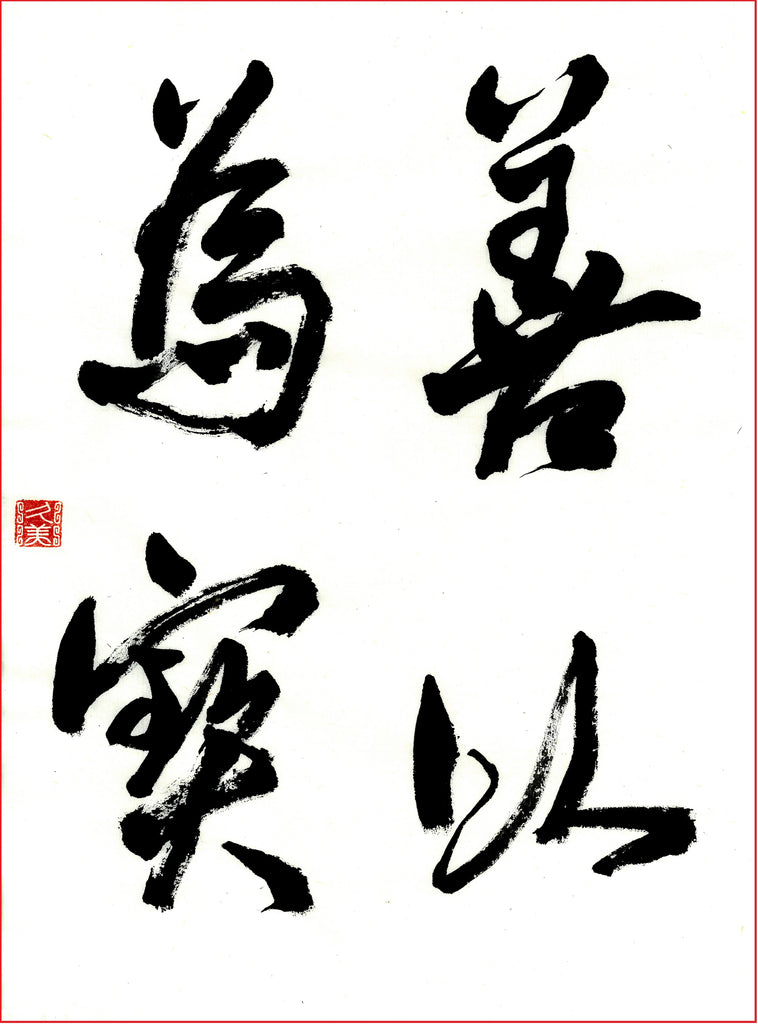 善以
為寶
久美